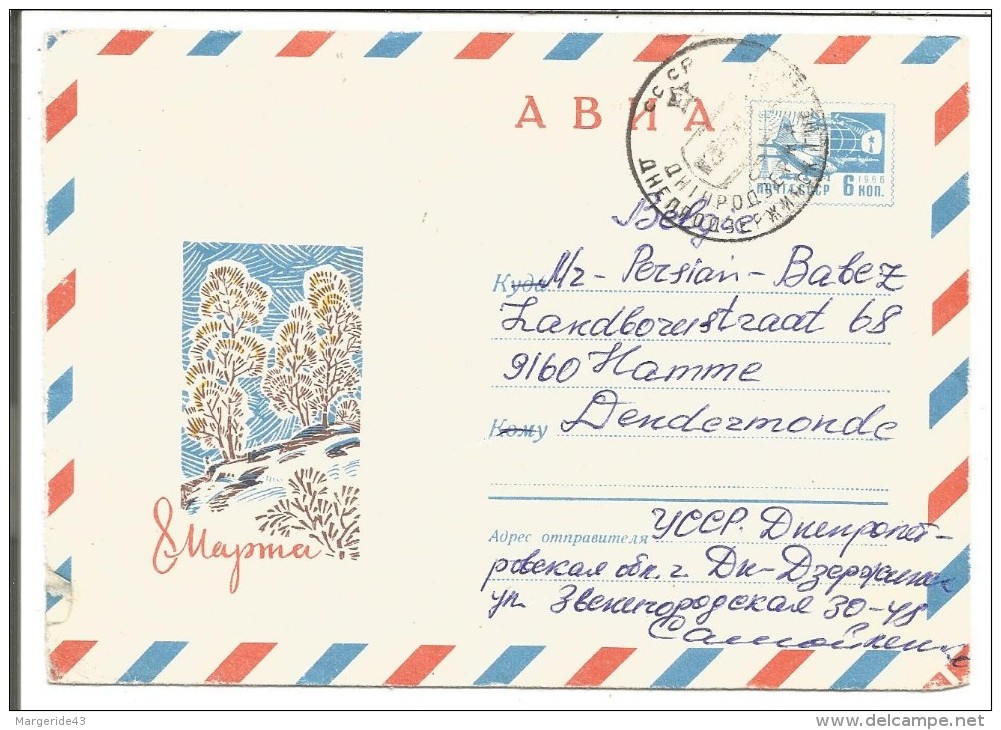 АВИА
СССР
ДНЕПРОДЗЕРЖИНСК
1966
ПОЧТА СССР 6 КОП.
België
Куда Mr - Persian - Babez
68
9160 Hamme
Кому Dendermonde
8 Марта
Адрес отправителя УССР. Днепропет-
ровская обл. г. Дн-Дзержинск
ул. Звенигородская 30-48
Margeride43
www.delcampe.net